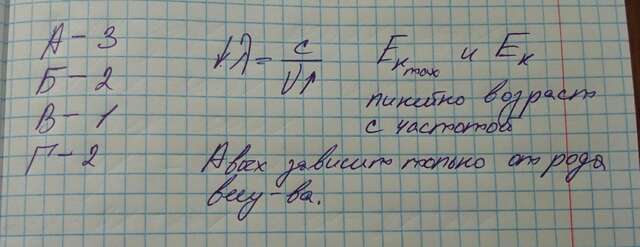 А – 3
Б – 2
В – 1
Г – 2
↓λ = c/ν↑
Eк max и Eк
линейно возраст
с частотой
Aвых зависит только от рода
вещ-ва.